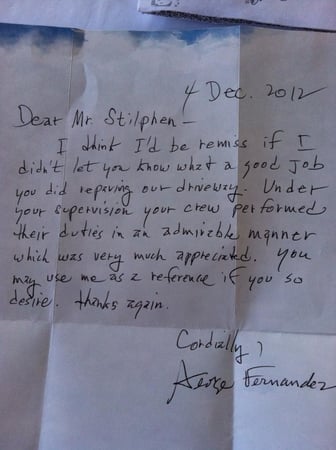 4 Dec. 2012
Dear Mr. Stilphen –
I think I'd be remiss if I
didn't let you know what a good job
you did repaving our driveway. Under
your supervision your crew performed
their duties in an admirable manner
which was very much appreciated. You
may use me as a reference if you so
desire. Thanks again.
Cordially,
Fernandez